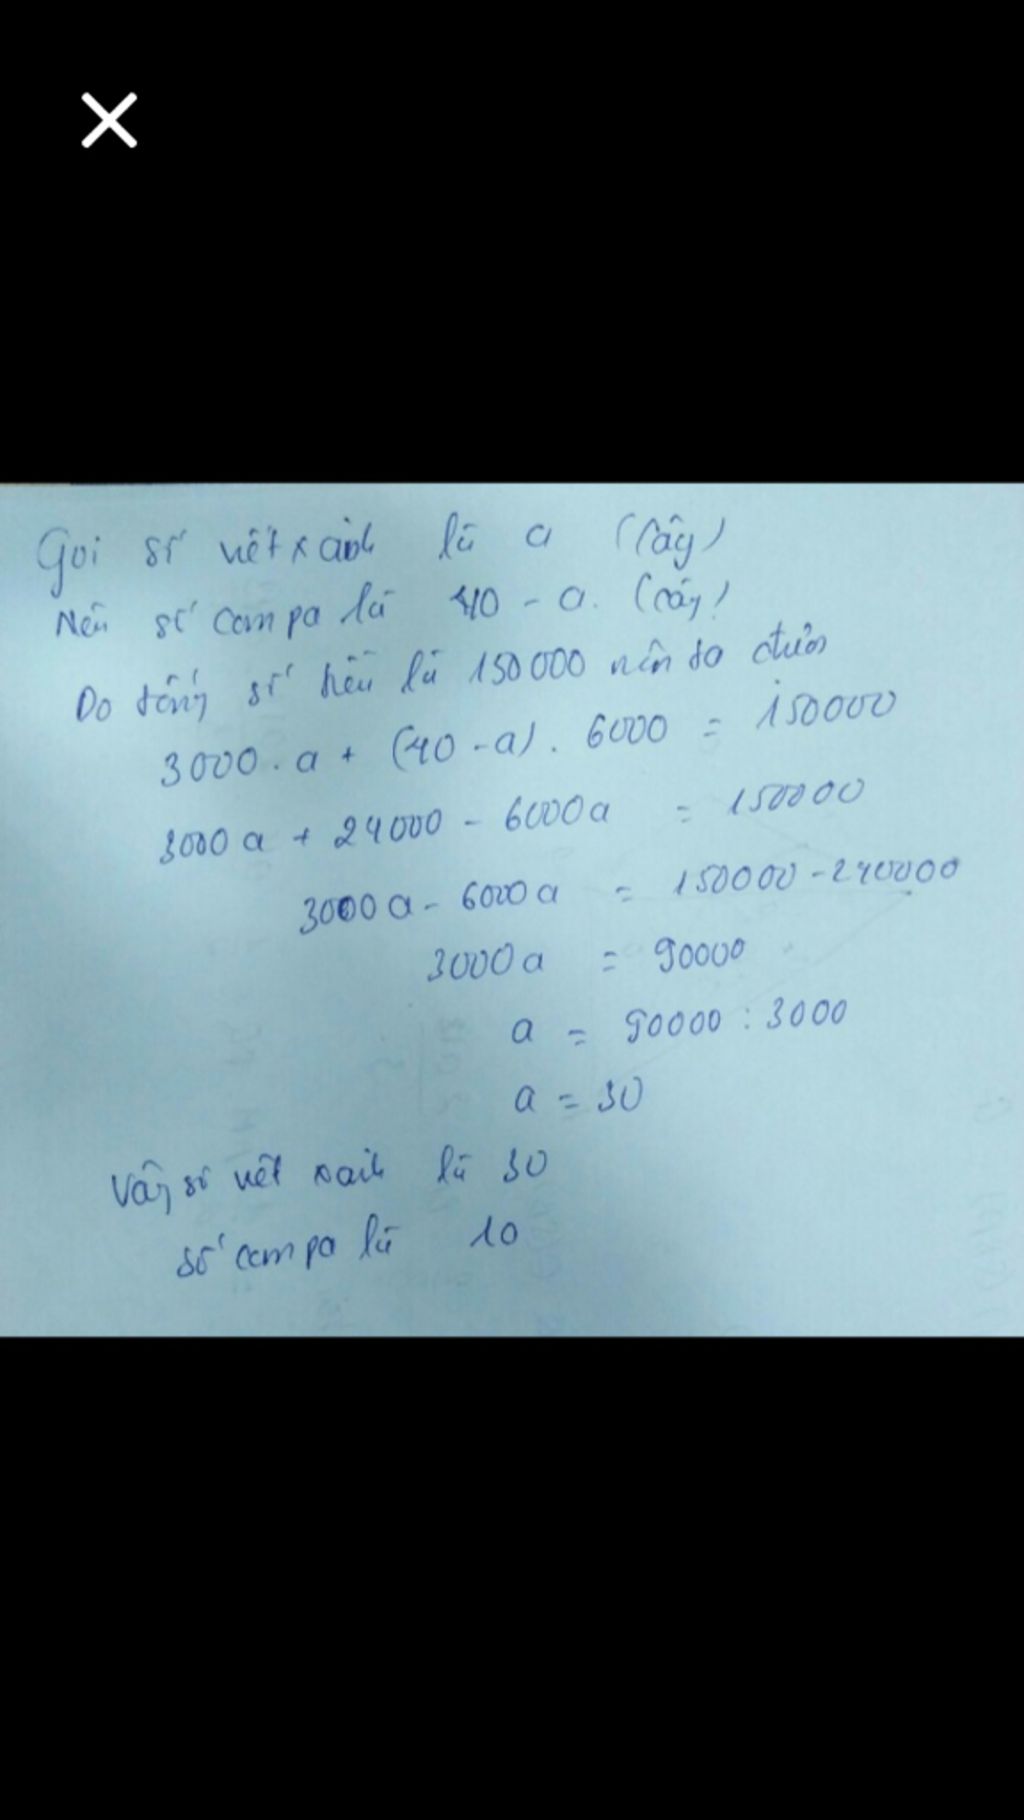 Gọi số viết xanh là a (cây)
Nên số compa là 40 - a. (cây)
Do tổng số tiền là 150000 nên ta được
3000. a + (40 - a) . 6000 = 150000
3000 a + 24000 - 6000a = 150000
3000 a - 6000 a = 150000 - 240000
3000 a = 90000
a = 90000 : 3000
a = 30
Vậy số viết xanh là 30
số compa là 10